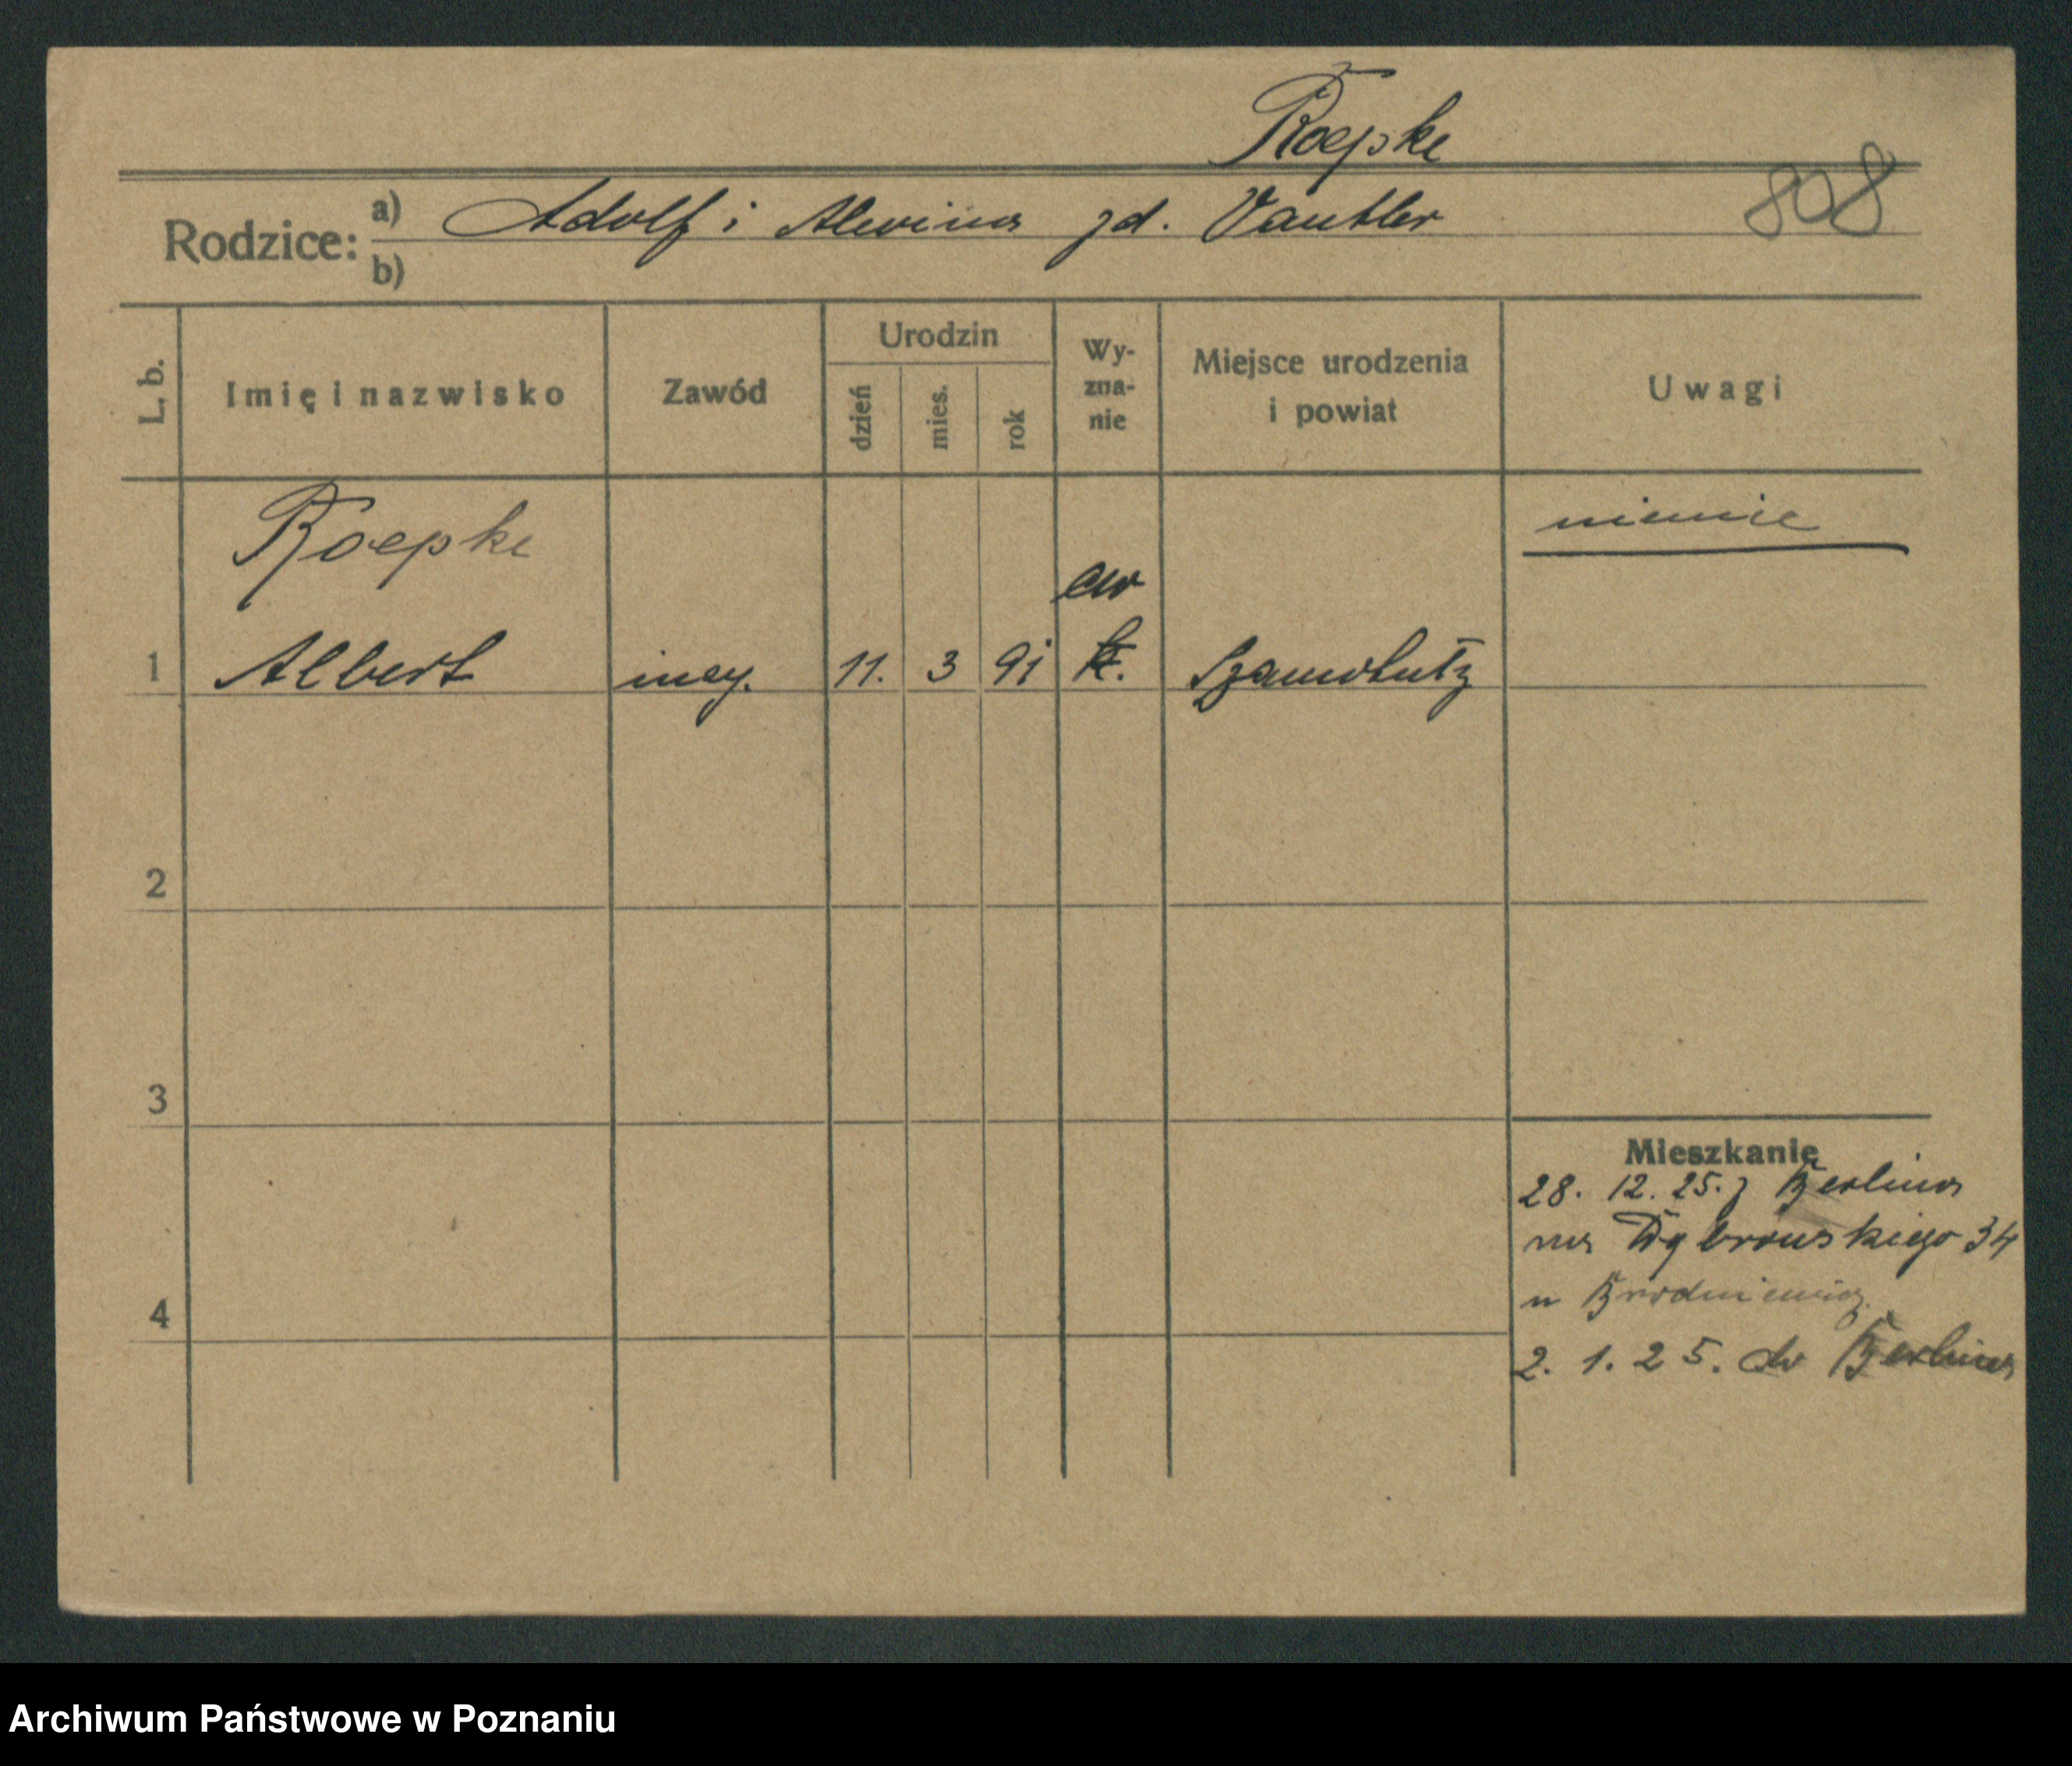 Roepke
808
Rodzice: a) Adolf i Alwina zd. Vauthler
b)
L. b.
Imię i nazwisko
Zawód
Urodzin
dzień
mies.
rok
Wy-
zna-
nie
Miejsce urodzenia
i powiat
Uwagi
Roepke
niemiec
ew
1 Albert 11. 3 91 k. Szamotuły
2
3
4
Mieszkanie
28. 12. 25. z Berlina
na Dąbrowskiego 34
u
2. 1. 25. do Berlina
Archiwum Państwowe w Poznaniu